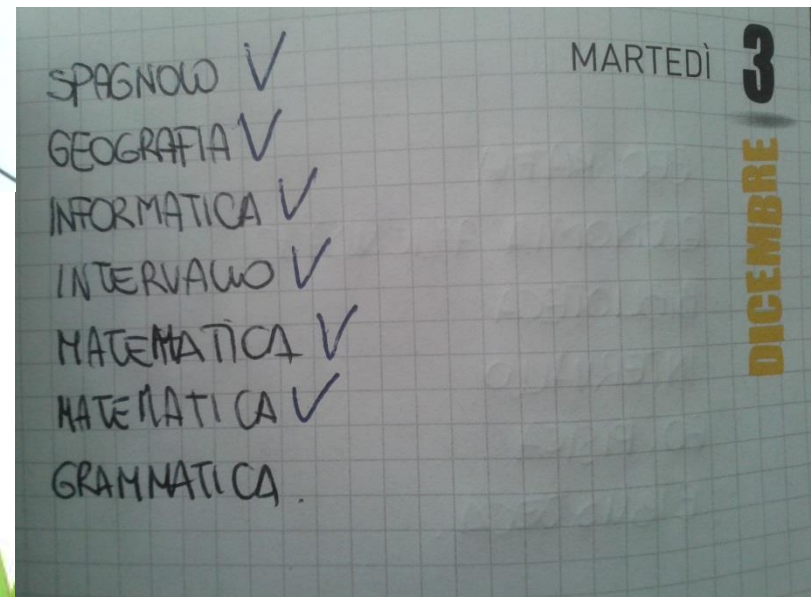 MARTEDÌ 3
DICEMBRE
SPAGNOLO V
GEOGRAFIA V
INFORMATICA V
INTERVALLO V
MATEMATICA V
MATEMATICA V
GRAMMATICA.